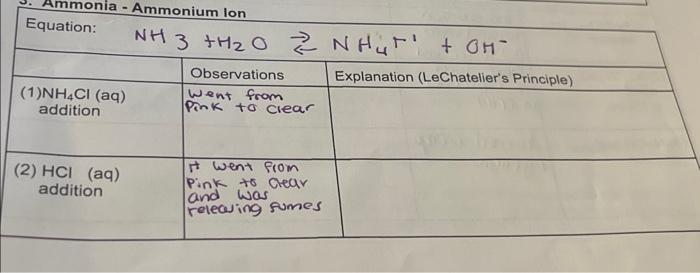 3. Ammonia - Ammonium Ion
Equation: NH3 +H2O ⇌ NH4+1 + OH-
Observations
Explanation (LeChatelier's Principle)
(1)NH₄Cl (aq)
addition
went from
Pink to clear
(2) HCl (aq)
addition
It went from
Pink to clear
and was
releasing fumes